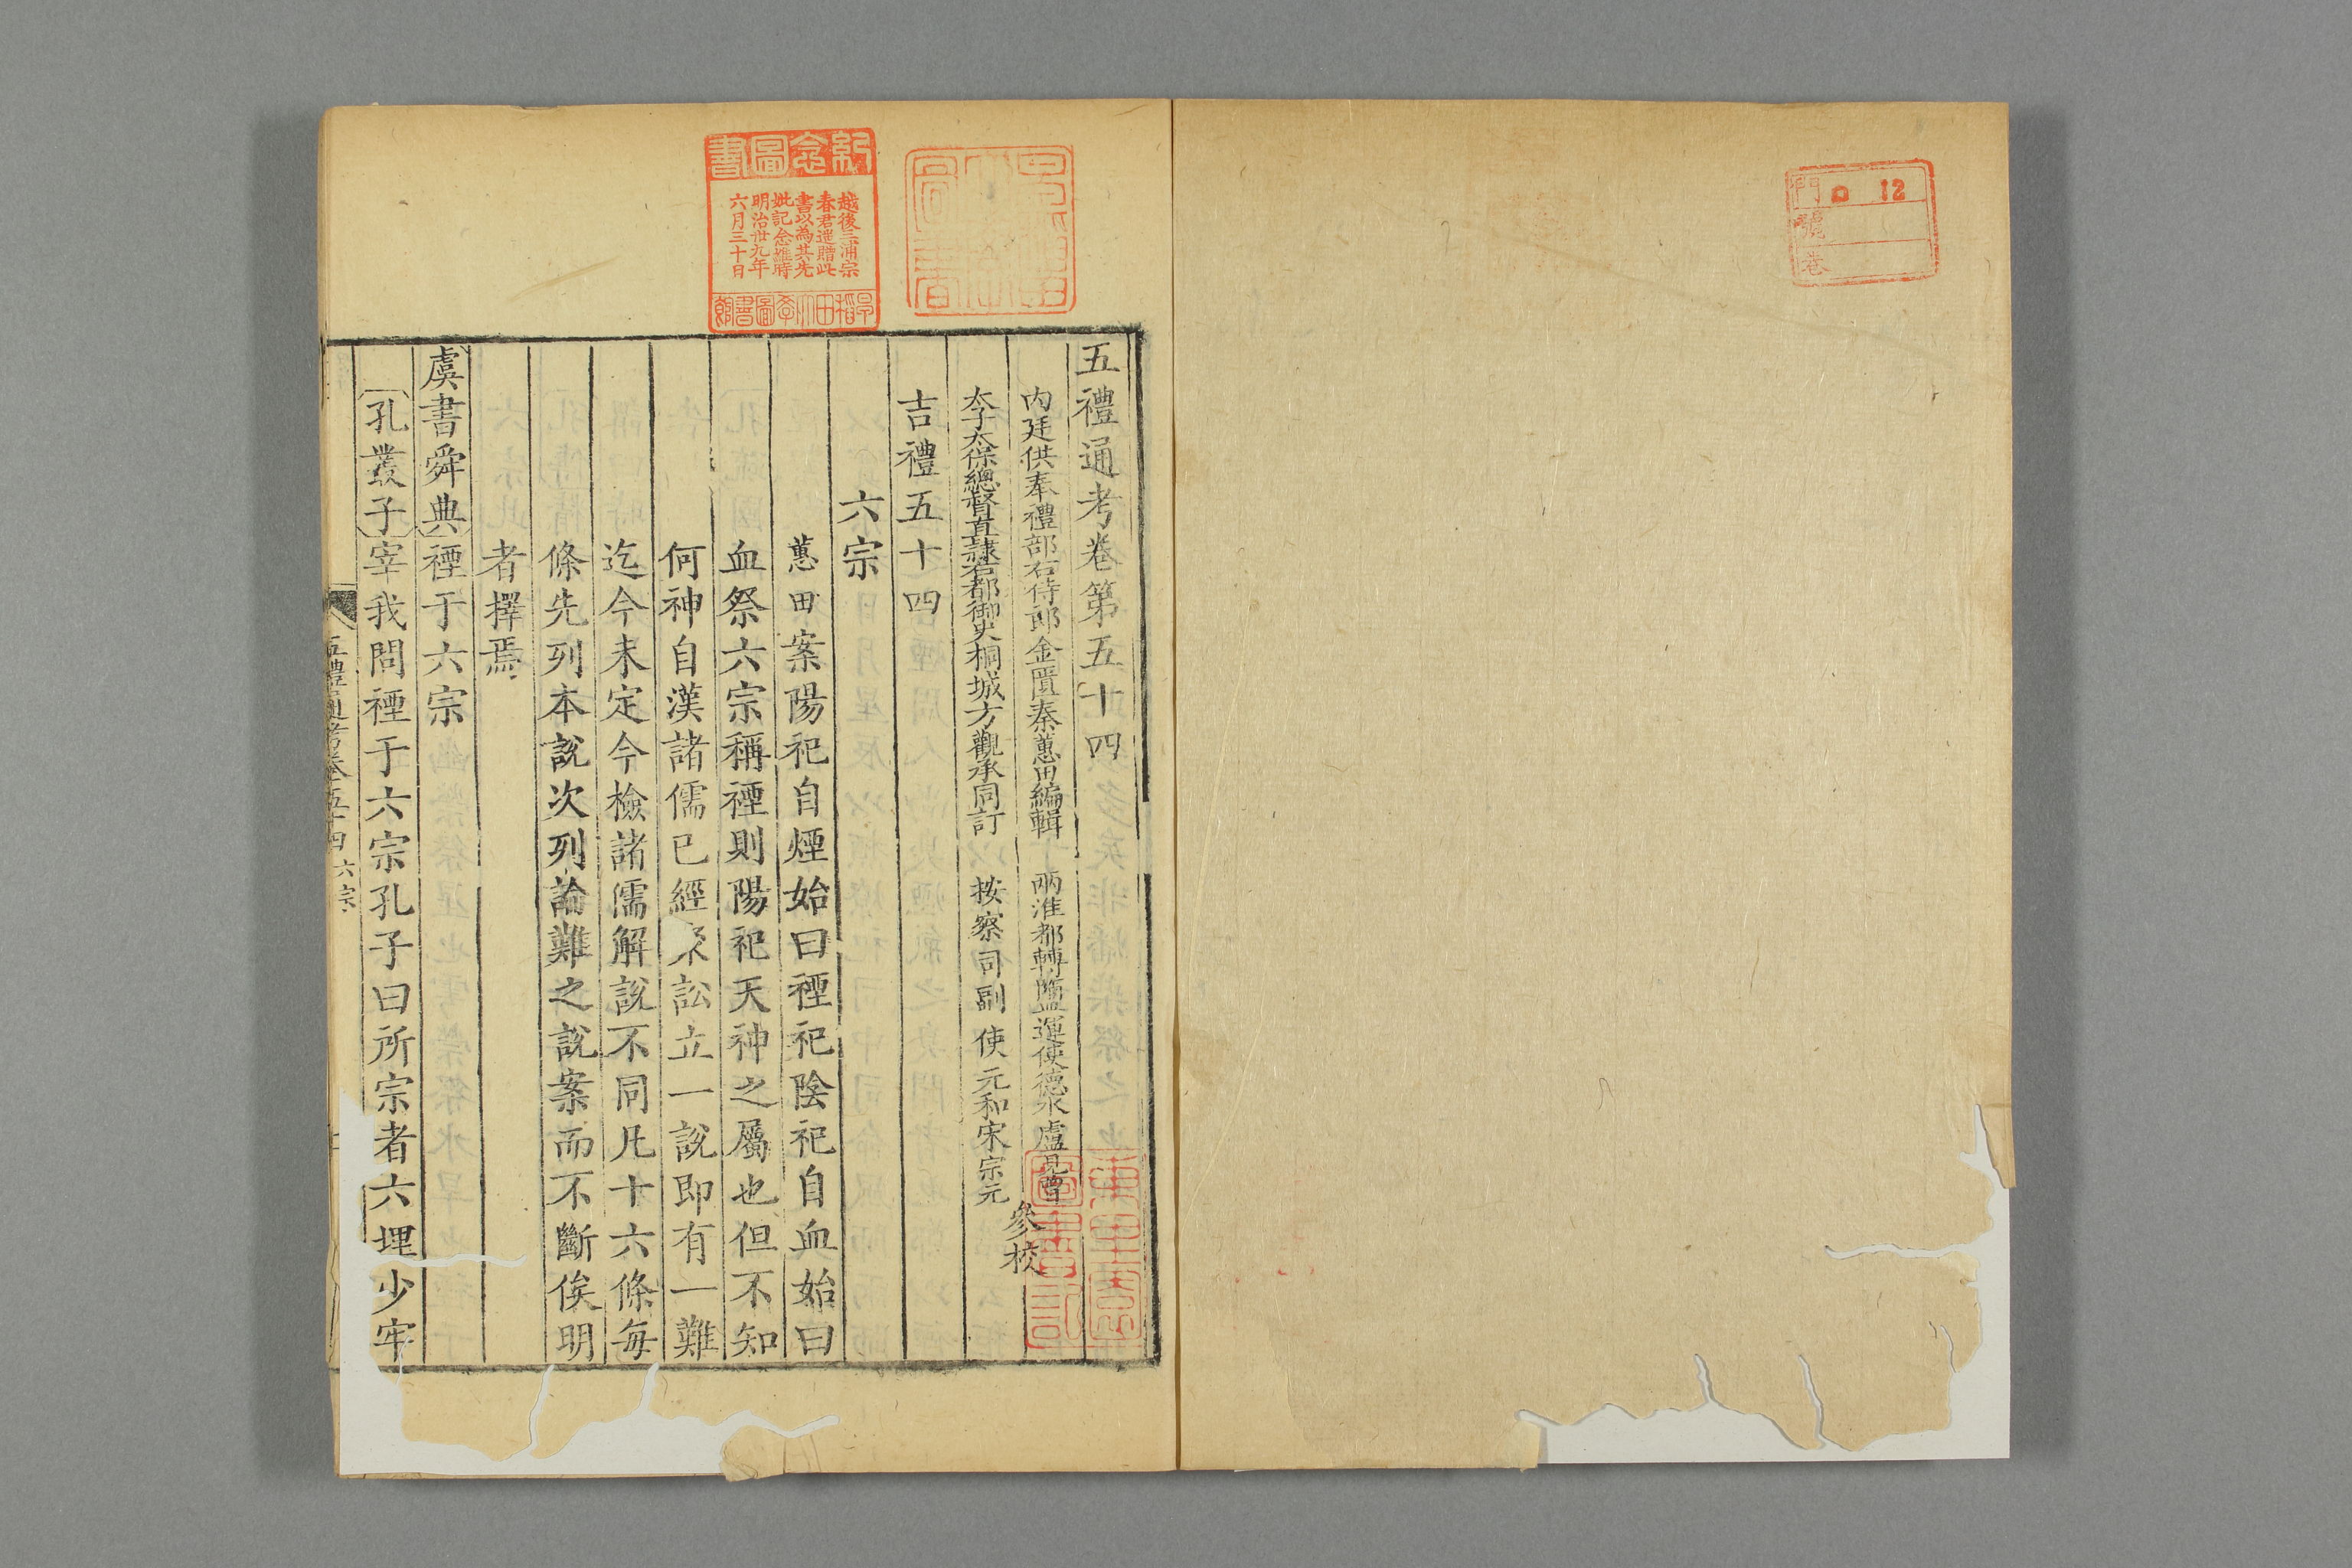 門 ロ 12
號
巻
五禮通考卷第五十四
内廷供奉禮部右侍郎金匱秦蕙田編輯 兩淮都轉鹽運使德水盧見曾
太子太保總督直隸右都御史桐城方觀承同訂 按察司副使元和宋宗元
參校
吉禮五十四
六宗
蕙田案陽祀自煙始曰禋祀陰祀自血始曰
血祭六宗稱禋則陽祀天神之屬也但不知
何神自漢諸儒已經聚訟立一說即有一難
迄今未定今檢諸儒解說不同凡十六條每
條先列本說次列論難之說案而不斷俟明
者擇焉
虞書舜典禋于六宗
孔叢子宰我問禋于六宗孔子曰所宗者六埋少牢
五禮通考卷五十四 六宗
紀念圖書
越後三浦宗
春君遙贈此
書以為其先
妣記念維時
明治卅九年
六月三十日
早稻田大學圖書館